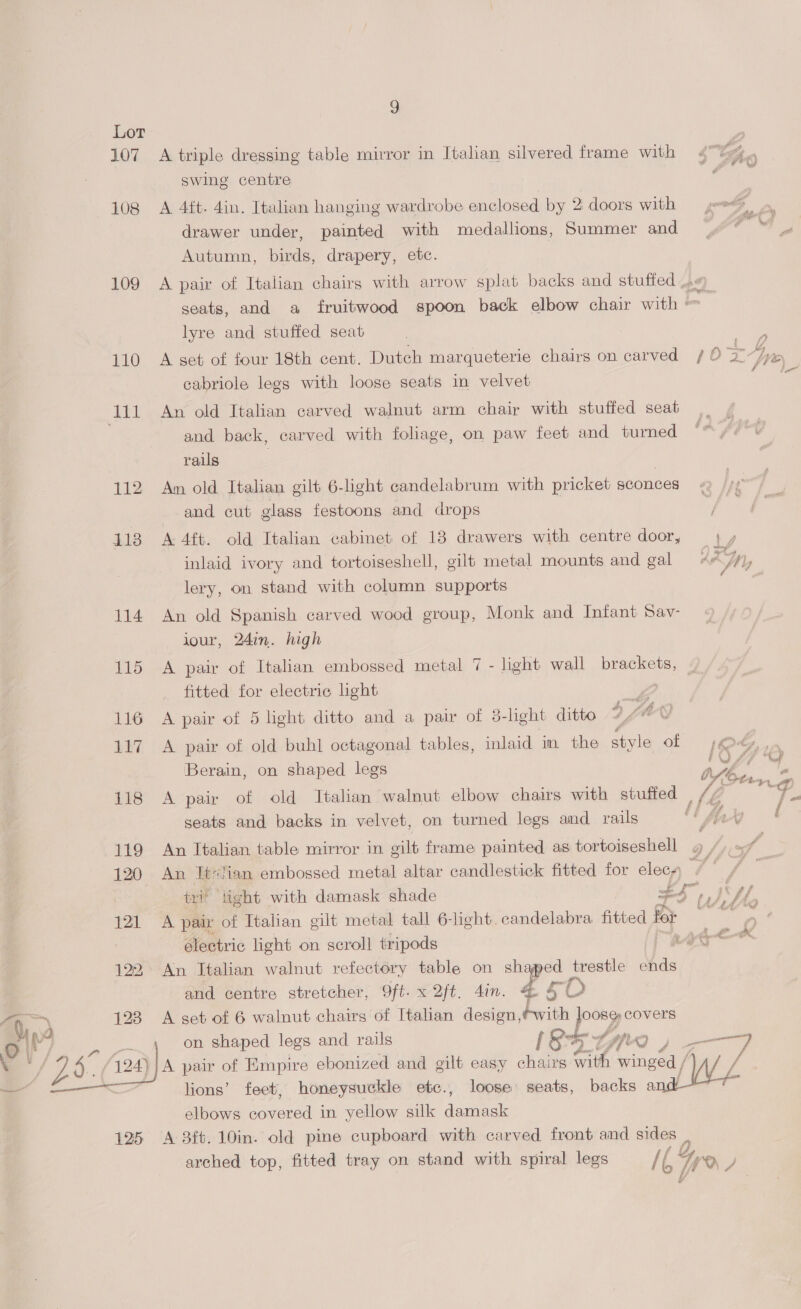 9
Lot
107 A triple dressing table mirror in Italian silvered frame with
swing centre
108 A 4ft. 4in. Italian hanging wardrobe enclosed by 2 doors with
drawer under, painted with medallions, Summer and
Autumn, birds, drapery, etc.
109 A pair of Italian chairs with arrow splat backs and stuffed
seats, and a fruitwood spoon back elbow chair with
lyre and stuffed seat
110 A set of four 18th cent. Dutch marqueterie chairs on carved
cabriole legs with loose seats in velvet
111 An old Italian carved walnut arm chair with stuffed seat
and back, carved with foliage, on paw feet and turned
rails
112 An old Italian gilt 6-light candelabrum with pricket sconces
and cut glass festoons and drops
113 A 4ft. old Italian cabinet of 13 drawers with centre door,
inlaid ivory and tortoiseshell, gilt metal mounts and gal
lery, on stand with column supports
114 An old Spanish carved wood group, Monk and Infant Sav-
iour, 24in. high
115 A pair of Italian embossed metal 7 - light wall brackets,
fitted for electric light
116 A pair of 5 light ditto and a pair of 3-light ditto
117 A pair of old buhl octagonal tables, inlaid in the style of
Berain, on shaped legs
118 A pair of old Italian walnut elbow chairs with stuffed
seats and backs in velvet, on turned legs and rails
119 An Italian table mirror in gilt frame painted as tortoiseshell
120 An Italian embossed metal altar candlestick fitted for elec
tric light with damask shade
121 A pair of Italian gilt metal tall 6-light candelabra fitted for
electric light on scroll tripods
122 An Italian walnut refectory table on shaped trestle ends
and centre stretcher, 9ft. x 2ft. 4in.
123 A set of 6 walnut chairs of Italian design, with loose covers
on shaped legs and rails
124 A pair of Empire ebonized and gilt easy chairs with winged
lions' feet, honeysuckle etc., loose seats, backs and
elbows covered in yellow silk damask
125 A 3ft. 10in. old pine cupboard with carved front and sides
arched top, fitted tray on stand with spiral legs